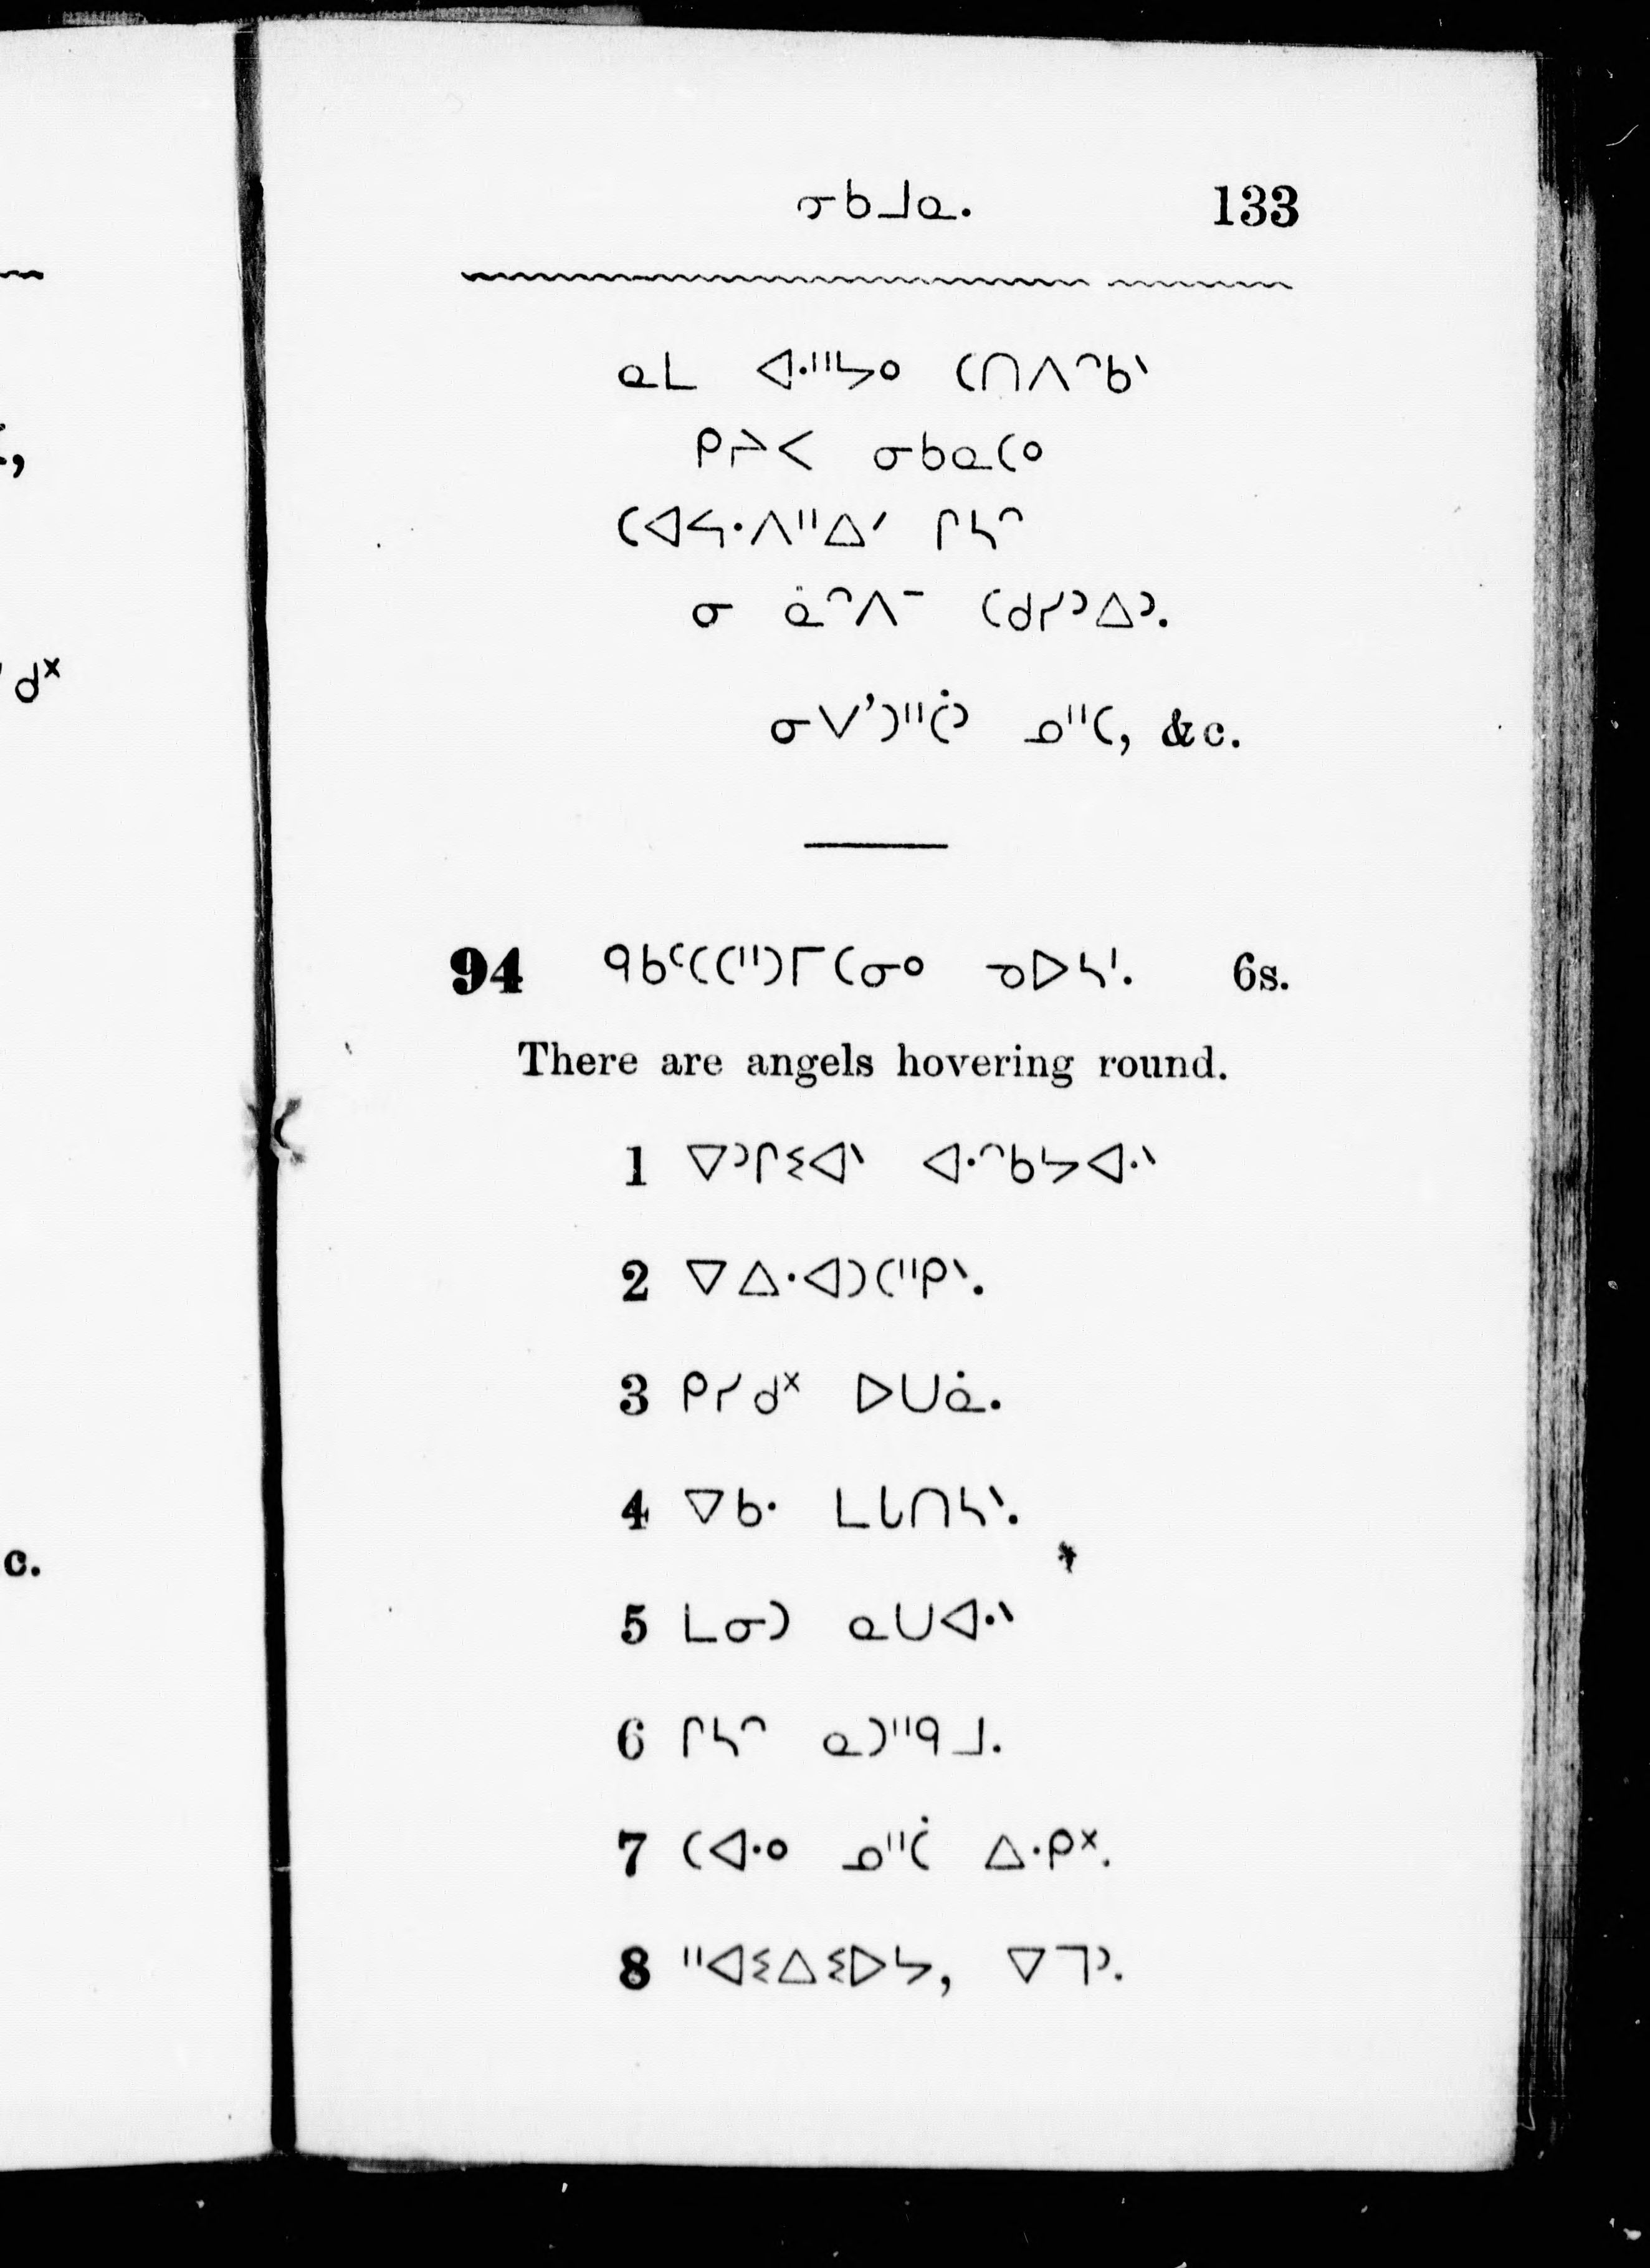 ᓂᑲᒧᓇ. 133
ᓇᒪ ᐊᐧᐦᔭᐤ ᑕᑎᐱᐢᑲᐠ
ᑭᓯᐸ ᓂᑲᓇᑕᐤ
ᑕᐊᔦᐧᐱᐦᐃᐟ ᒋᓴᐢ
ᓂ ᓈᐢᐱᐨ ᑕᑯᓯᐣᐃᐣ.
ᓂᐯ’ᑐᐦᑖᐣ ᓄᐦᑕ, &c.
94 ᑫᑲᑦᑕᑕᐦᑐᒥᑕᓂᐤ ᓀᐅᓴᑊ. 6s.
There are angels hovering round.
1 ᐁᐣᒋᓬᐊᐠ ᐊᐧᐢᑲᔭᐊᐧᐠ
2 ᐁᐃᐧᐊᑐᑕᐦᑭᐠ.
3 ᑭᓯᑯᕽ ᐅᑌᓈ.
4 ᐁᑲᐧ ᒪᒐᑎᓴᐠ.
5 ᒪᓂᑐ ᓇᑌᐊᐧᐠ
6 ᒋᓴᐢ ᓇᑐᐦᑫᒧ.
7 ᑕᐊᐧᐤ ᓄᐦᑖ ᐃᐧᑭᕽ.
8 ᐦᐊᓬᐃᓬᐅᔭ, ᐁᒣᐣ.
c.